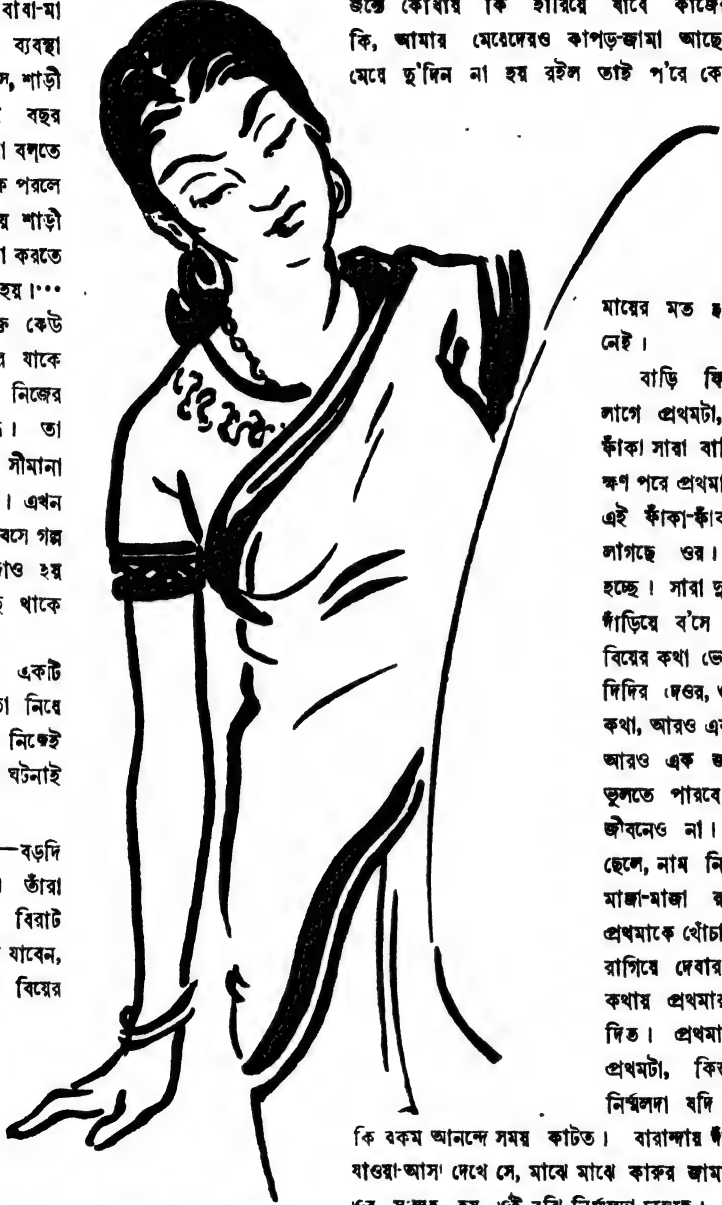 বাবা-মা
ব্যবস্থা
শাড়ী
বছর
বলতে
পরলে
শাড়ী
করতে
হয়।···
কেউ
যাকে
নিজের
তা
সীমানা
। এখন
বসে গল্প
হয়
থাকে
একটি
নিয়ে
নিজেই
ঘটনাই
—বড়দি
তাঁরা
বিরাট
যাবেন,
বিয়ের
জন্যে কোথায় কি হারিয়ে যাবে কাজের
কি, আমার মেয়েদেরও কাপড়-জামা আছে
মেয়ে দু'দিন না হয় রইল তাই প'রে
মায়ের মত
নেই।
বাড়ি
লাগে প্রথমটা,
ফাঁকা সারা
ক্ষণ পরে
এই ফাঁকা-ফাঁকা
লাগছে ওর।
হচ্ছে। সারা
দাঁড়িয়ে ব'সে
বিয়ের কথা
দিদির দেওর,
কথা, আরও
আরও এক
ভুলতে পারবে
জীবনেও না।
ছেলে, নাম
মাজা-মাজা
প্রথমাকে
রাগিয়ে দেবার
কথায় প্রথমার
দিত। প্রথমা
প্রথমটা,
নির্ম্মলদা যদি
কি রকম আনন্দে সময় কাটত। বারান্দায়
যাওয়া-আসা দেখে সে, মাঝে মাঝে কারুর